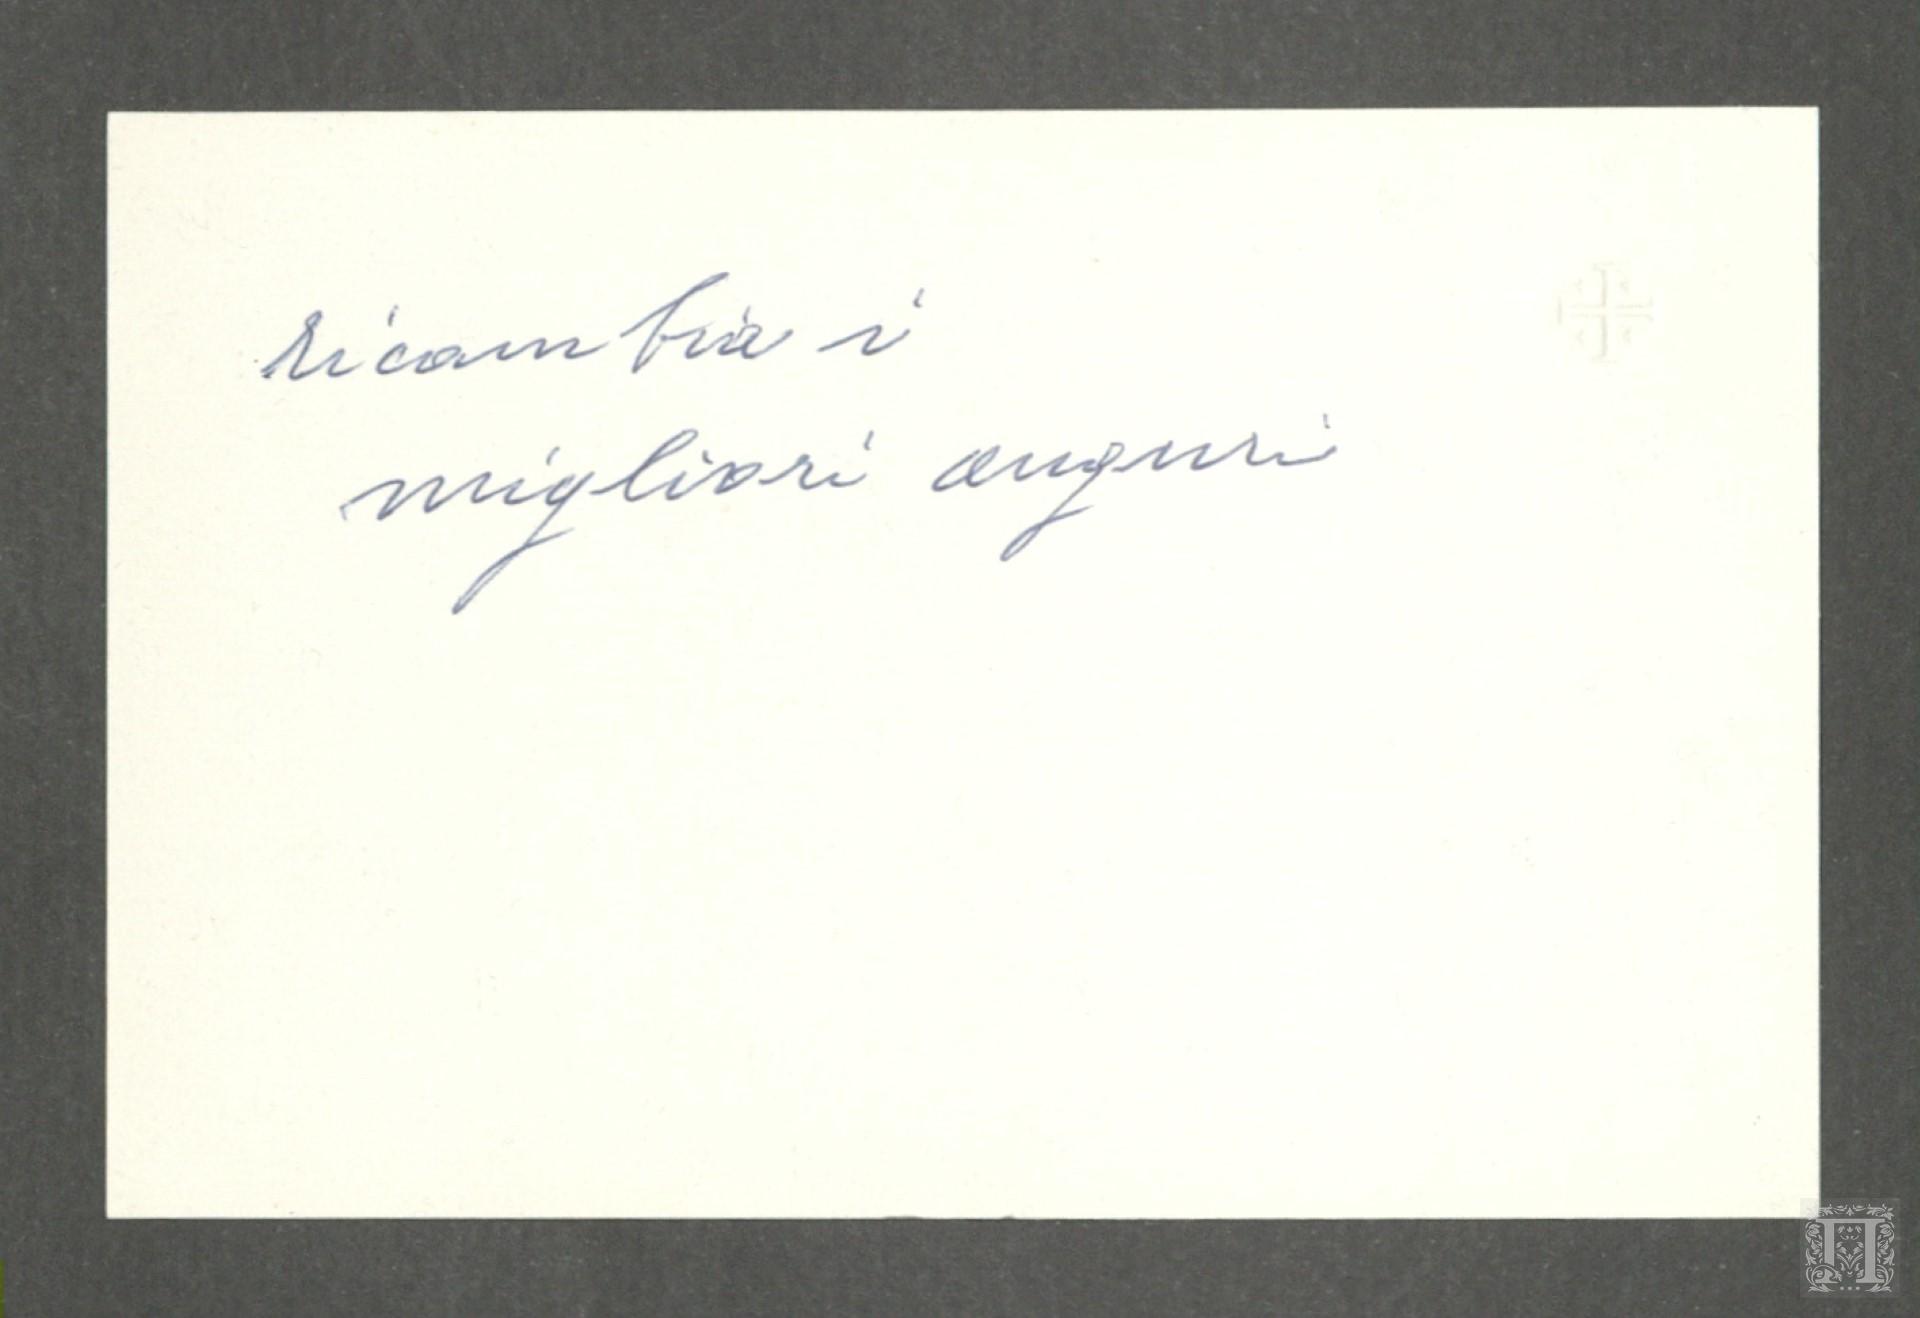 ricambia i
migliori auguri